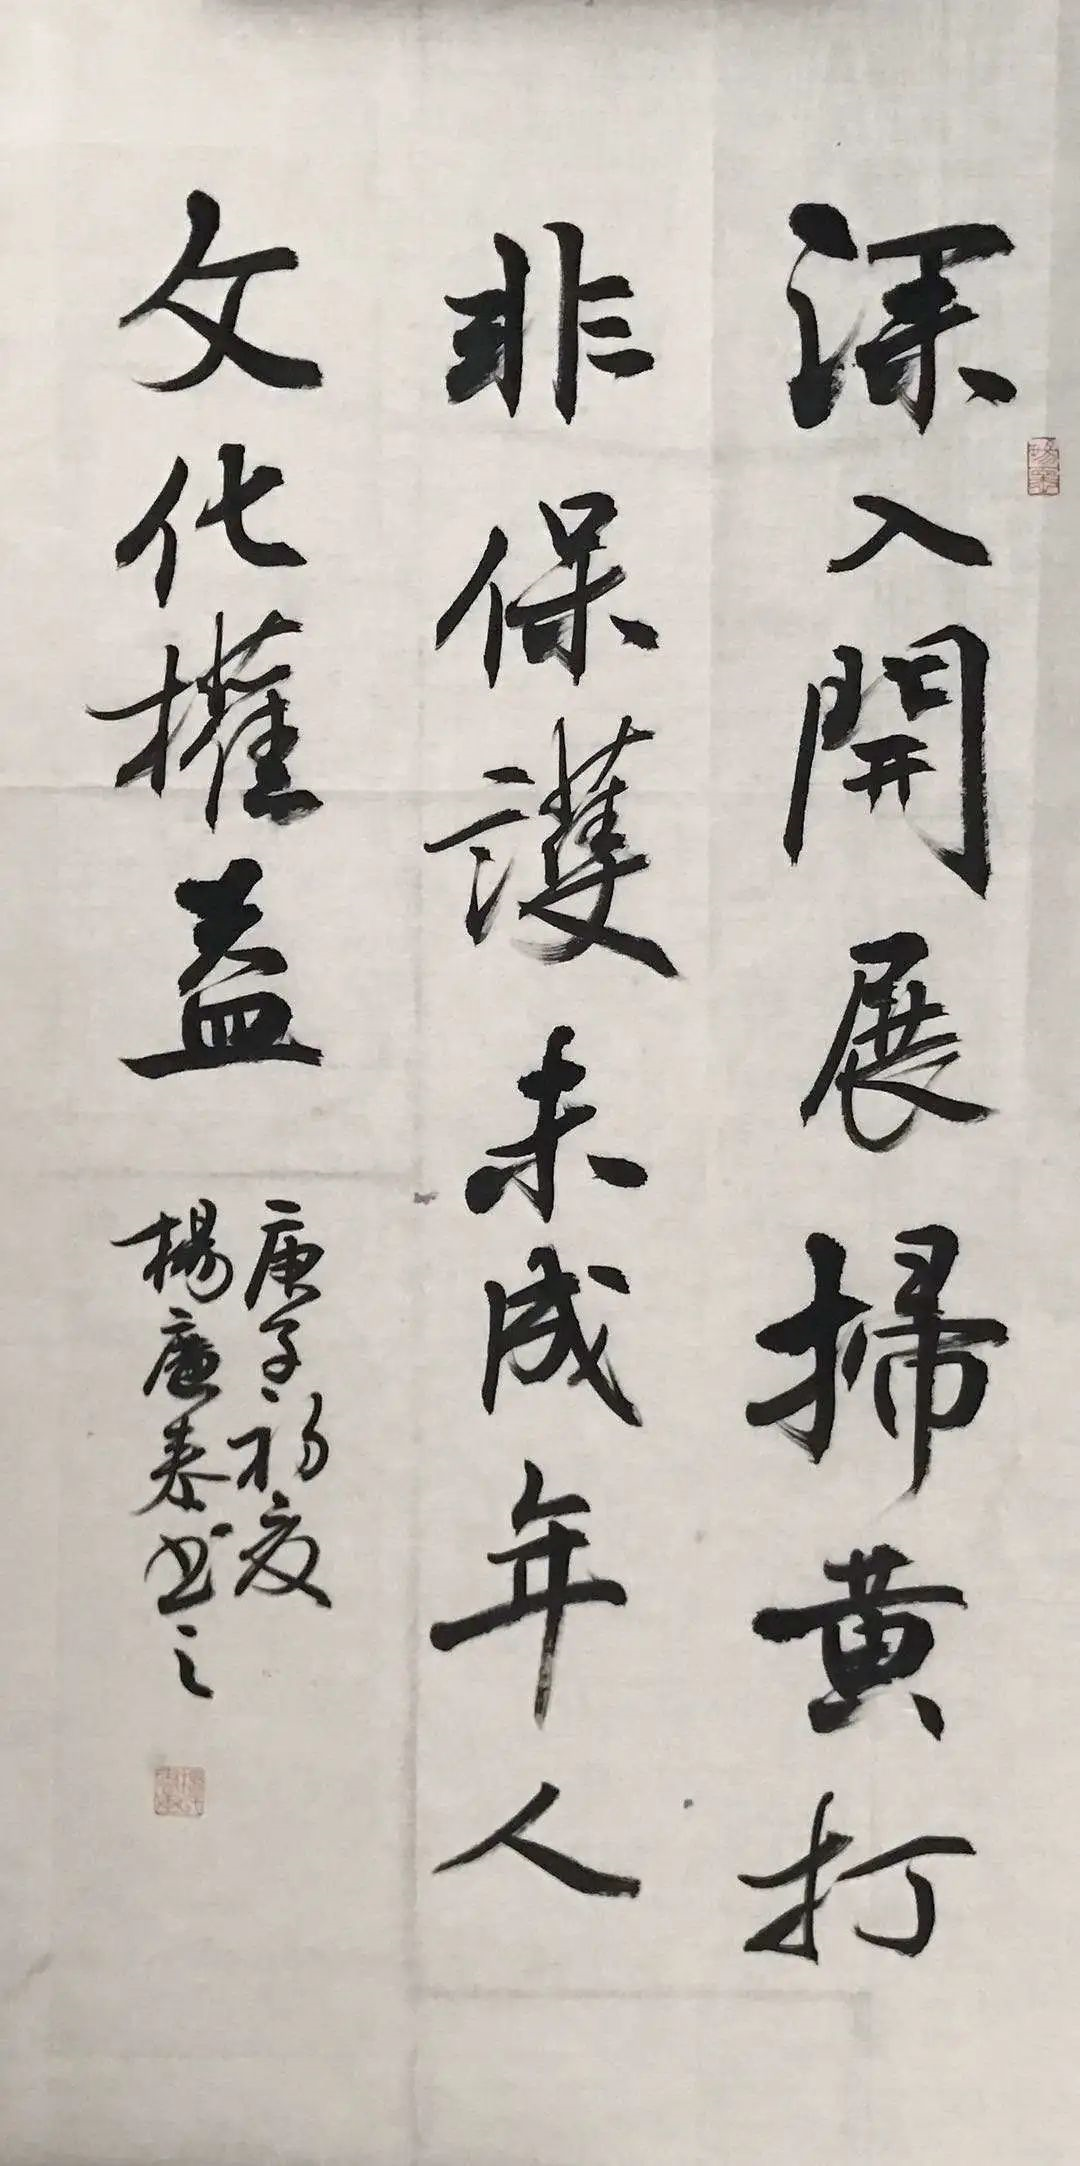 深入開展掃黄打
非保護未成年人
文化權益
庚子初夏
楊廉泰书之